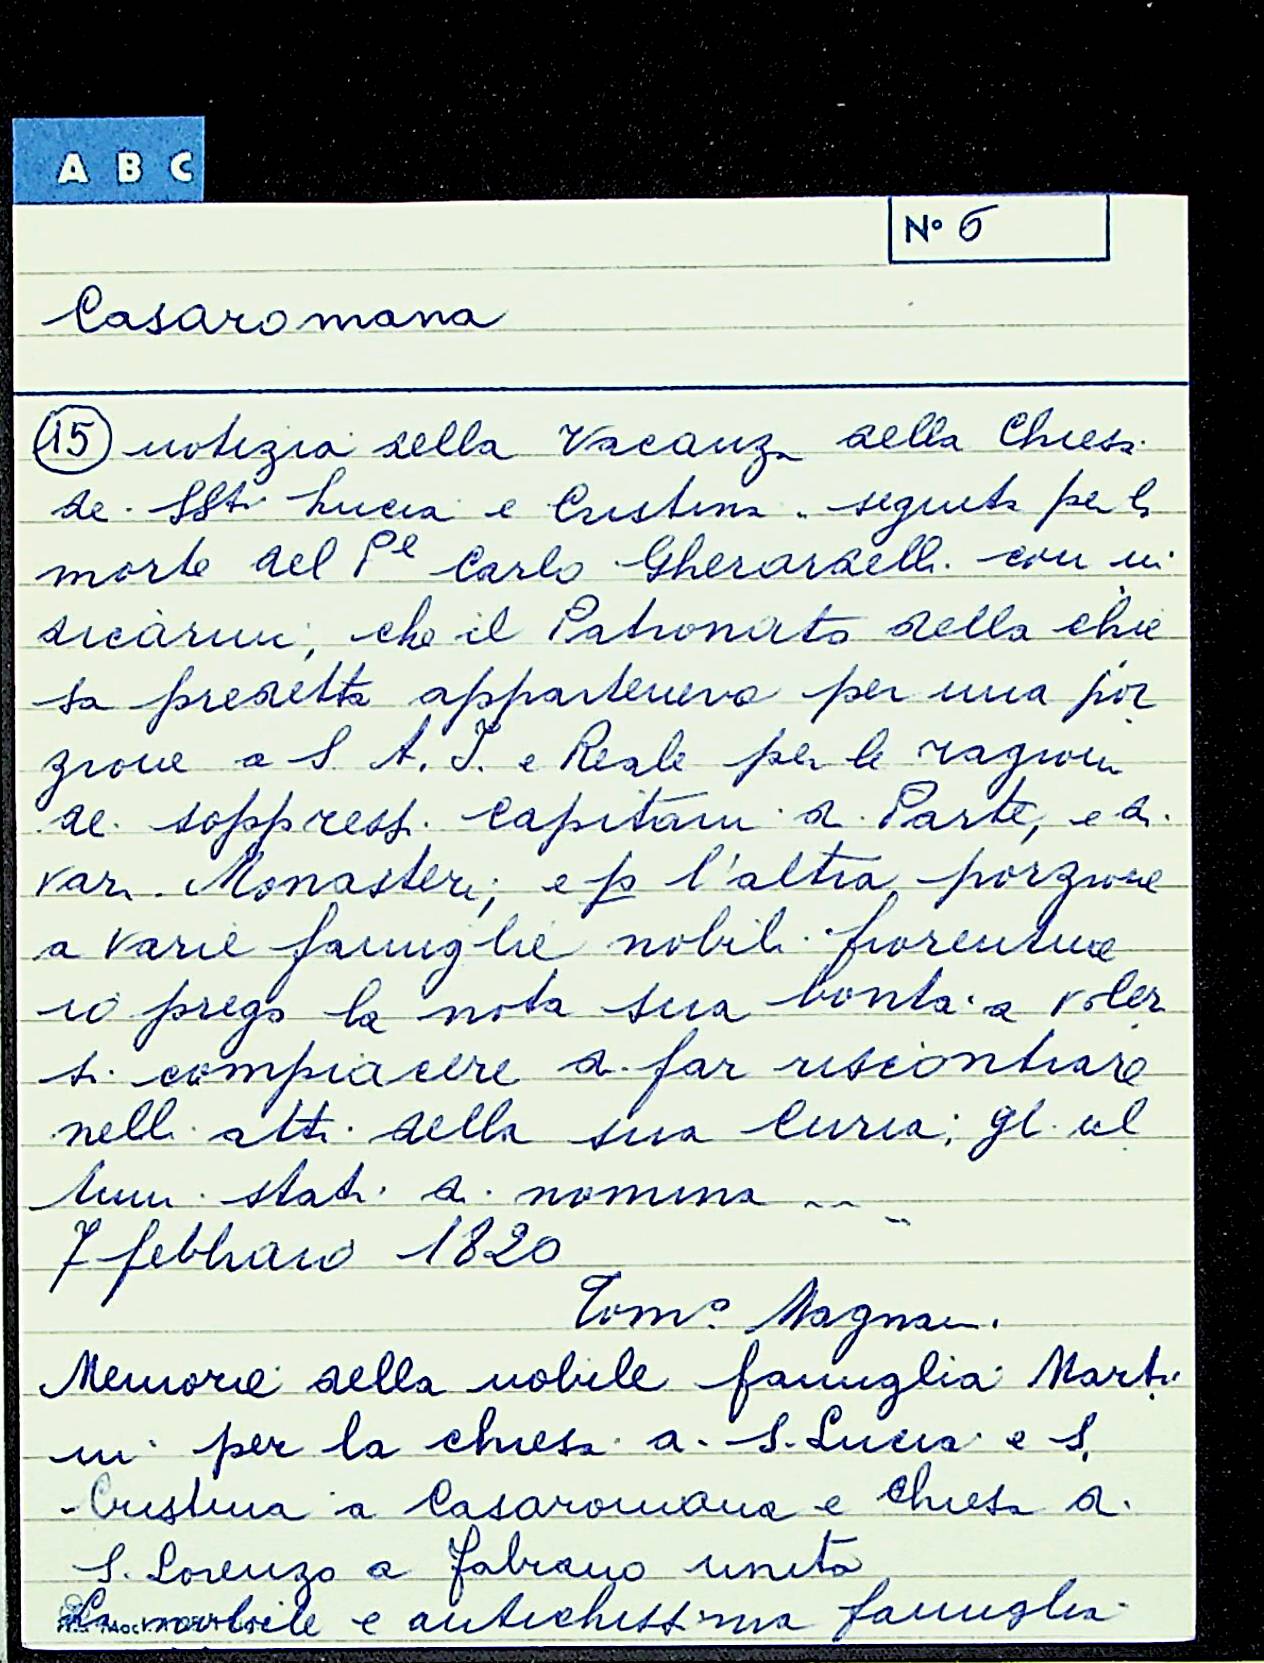 A B C
N° 6
Casaromana
15 notizia della Vacanza della Chiesa
de SSte Lucia e Cristina seguita per la
morte del Pe Carlo Gherardelli con in
dicarmi, che il Patronato della chie
sa predetta apparteneva per una por
zione a S. A. I. e Reale per le ragioni
dei soppressi Capitani di Parte, e di
vari Monasteri; e p l'altra porzione
a varie famiglie nobili fiorentine
io prego la nota sua bontà a voler
si compiacere di far riscontrare
nelli atti della sua Curia; gli ul
timi stati di nomina ...
7 febbraio 1820
Tomo. Magnani.
Memorie della nobile famiglia Marti
ni per la chiesa di S. Lucia e S.
Cristina a Casaromana e chiesa di
S. Lorenzo a Fabiano unita
La nobile e antichissima famiglia